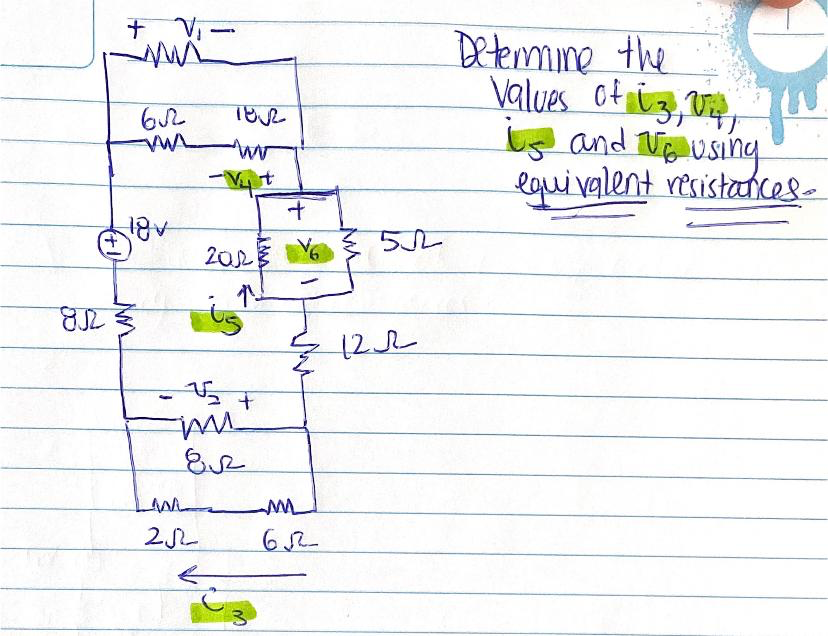 + V₁ −
Determine the
Values of i₃, v₄,
i₅ and v₆ using
equivalent resistances.
6Ω 18Ω
- V₄ +
+
18v
20Ω V₆ 5Ω
−
i₅
8Ω
12Ω
- V₂ +
8Ω
2Ω 6Ω
i₃